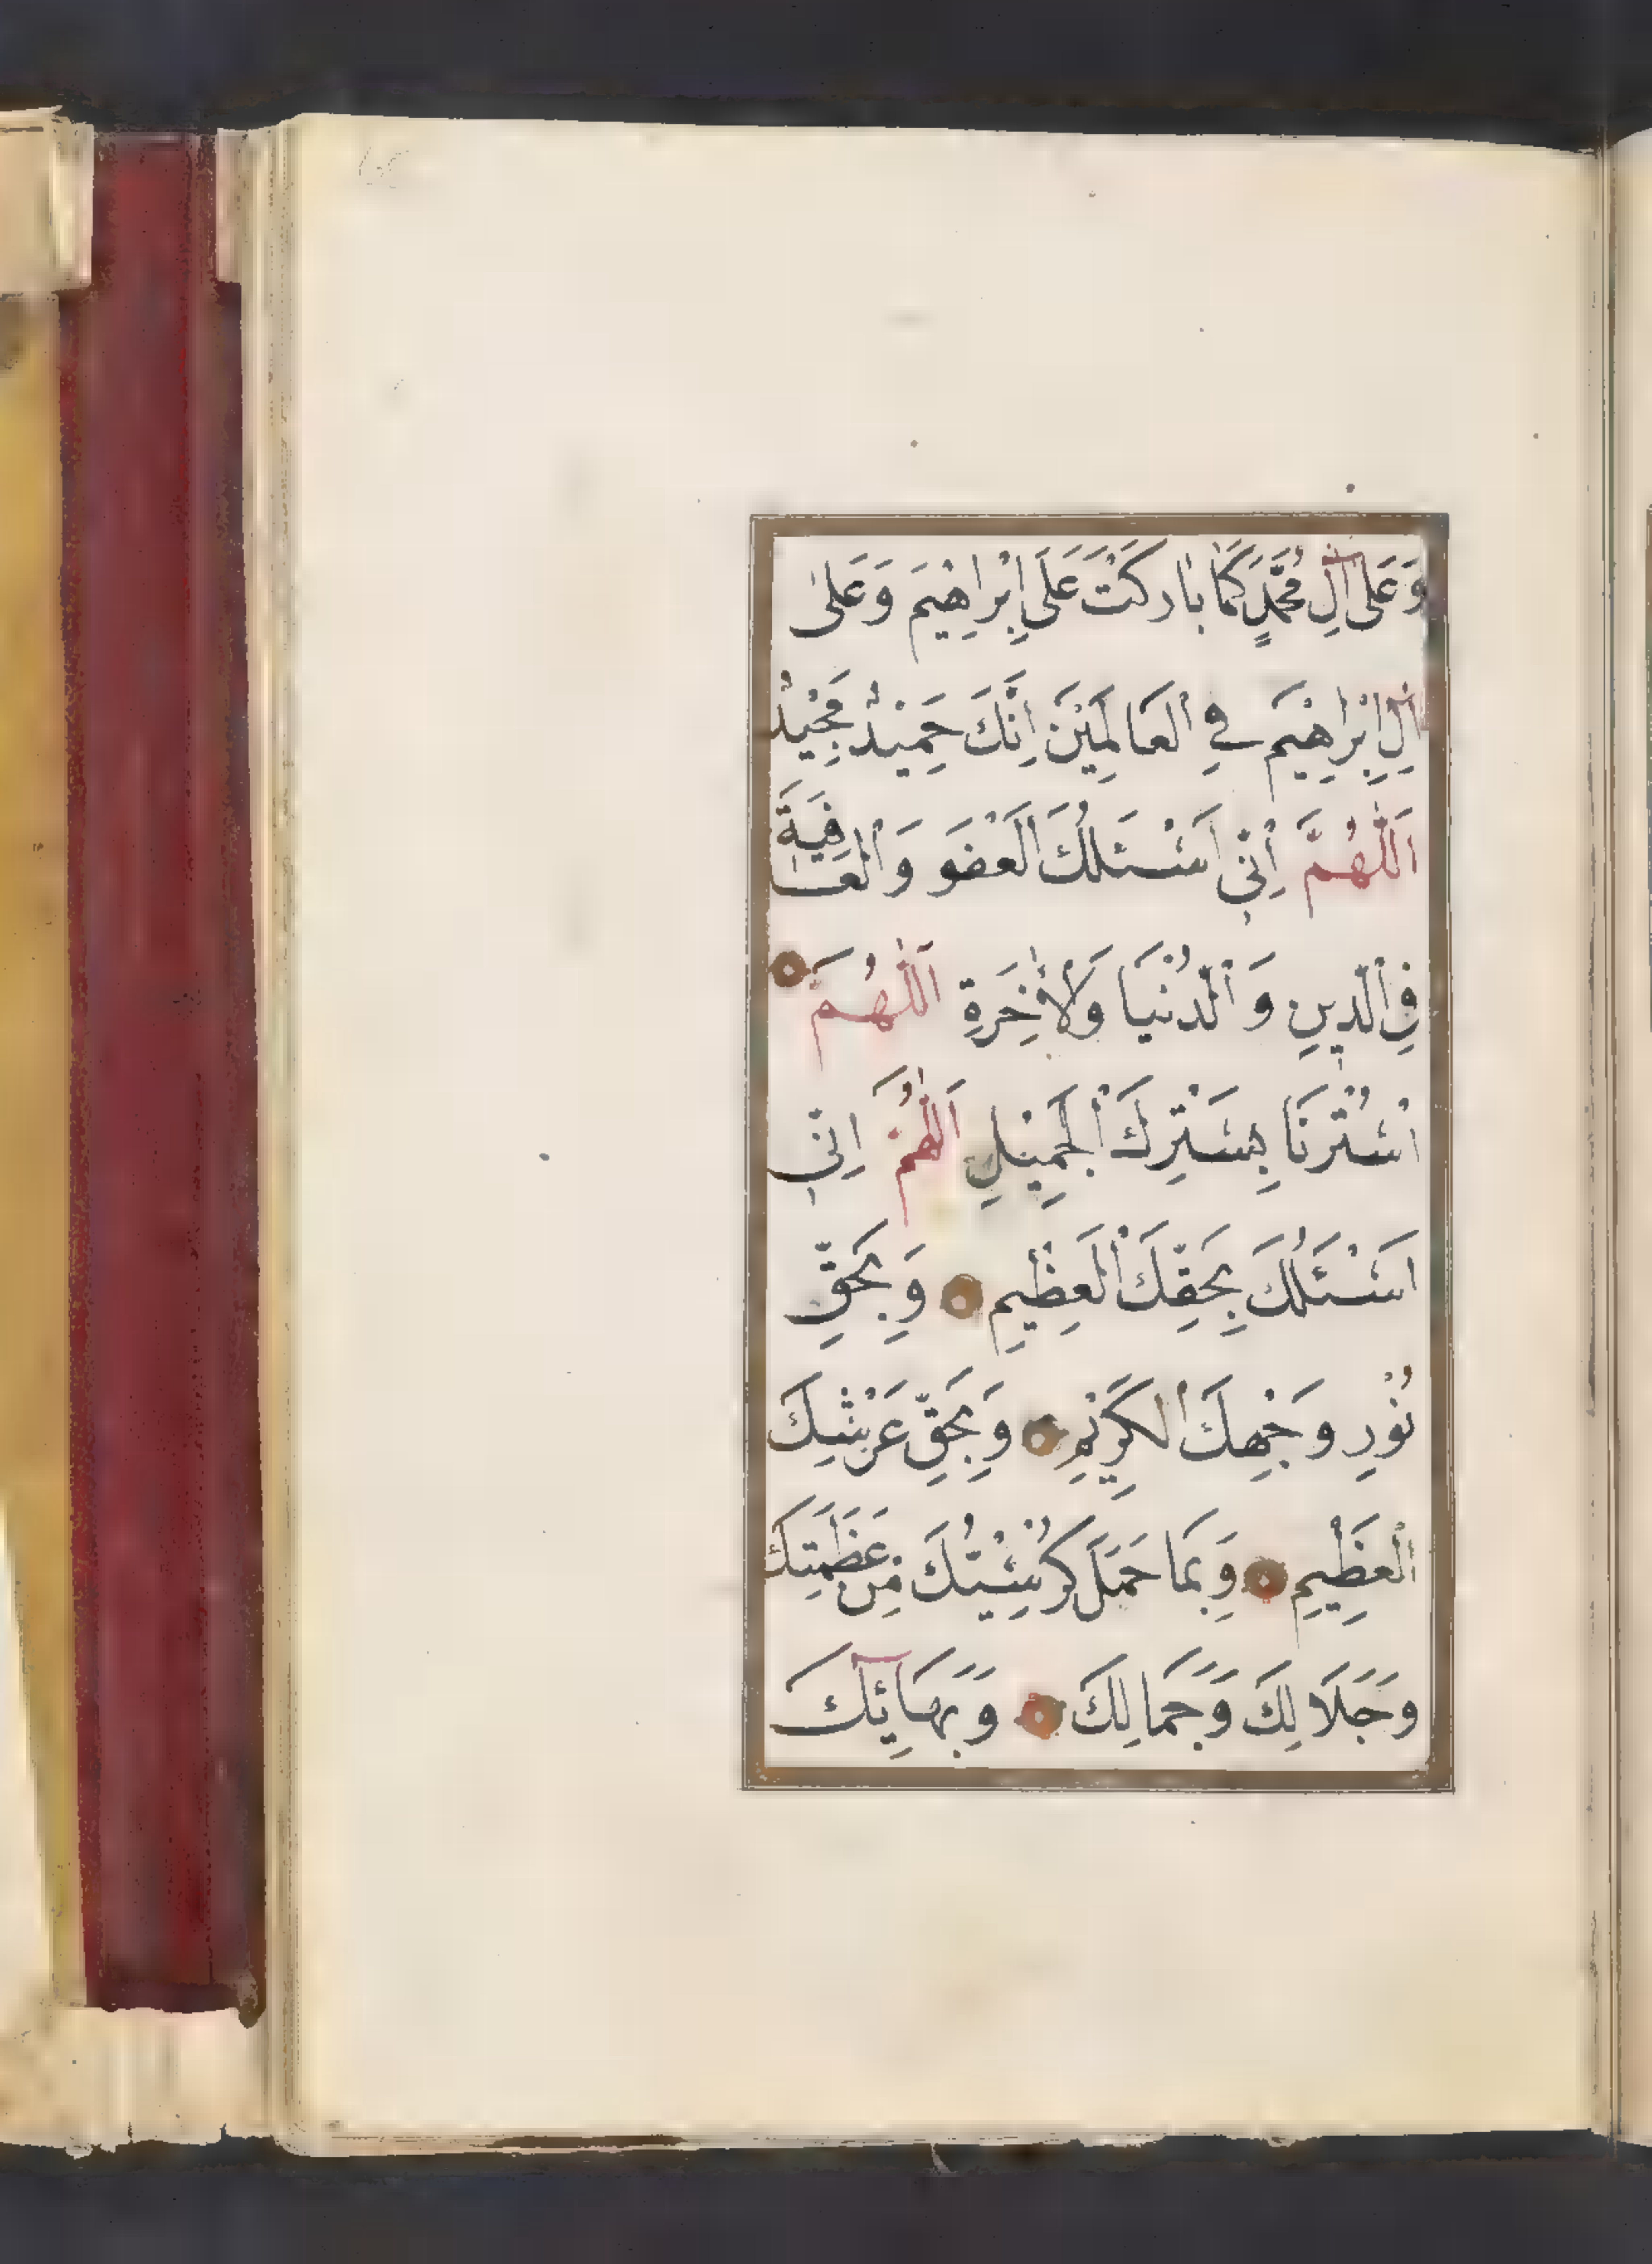 وَعَلَى آلِ مُحَمَّدٍ كَمَا بَارَكْتَ عَلَى اِبْرَاهِيْمَ وَعَلٰى
آلِ اِبْرَاهِيْمَ فِي الْعَالَمِيْنَ اِنَّكَ حَمِيْدٌ مَجِيْدٌ
اَللّٰهُمَّ اِنِّي اَسْئَلُكَ الْعَفْوَ وَالْعَافِيَةَ
فِي الْدِّينِ وَالْدُنْيَا وَلْاٰخِرَةِ اَللّٰهُمَّ
اسْتُرْنَا بِسَتْرِكَ الْجَمِيْلِ اَللّٰهُمَّ اِنِّي
اَسْئَلُكَ بِحَقِّكَ الْعَظِيْمِ وَبِحَقِّ
نُوْرِ وَجْهِكَ الْكَرِيْمِ وَبِحَقِّ عَرْشِكَ
الْعَظِيْمِ وَبِمَا حَمَلَ كُرْسِيُّكَ مِنْ عَظَمَتِكَ
وَجَلَالِكَ وَجَمَالِكَ وَبَهَآئِكَ